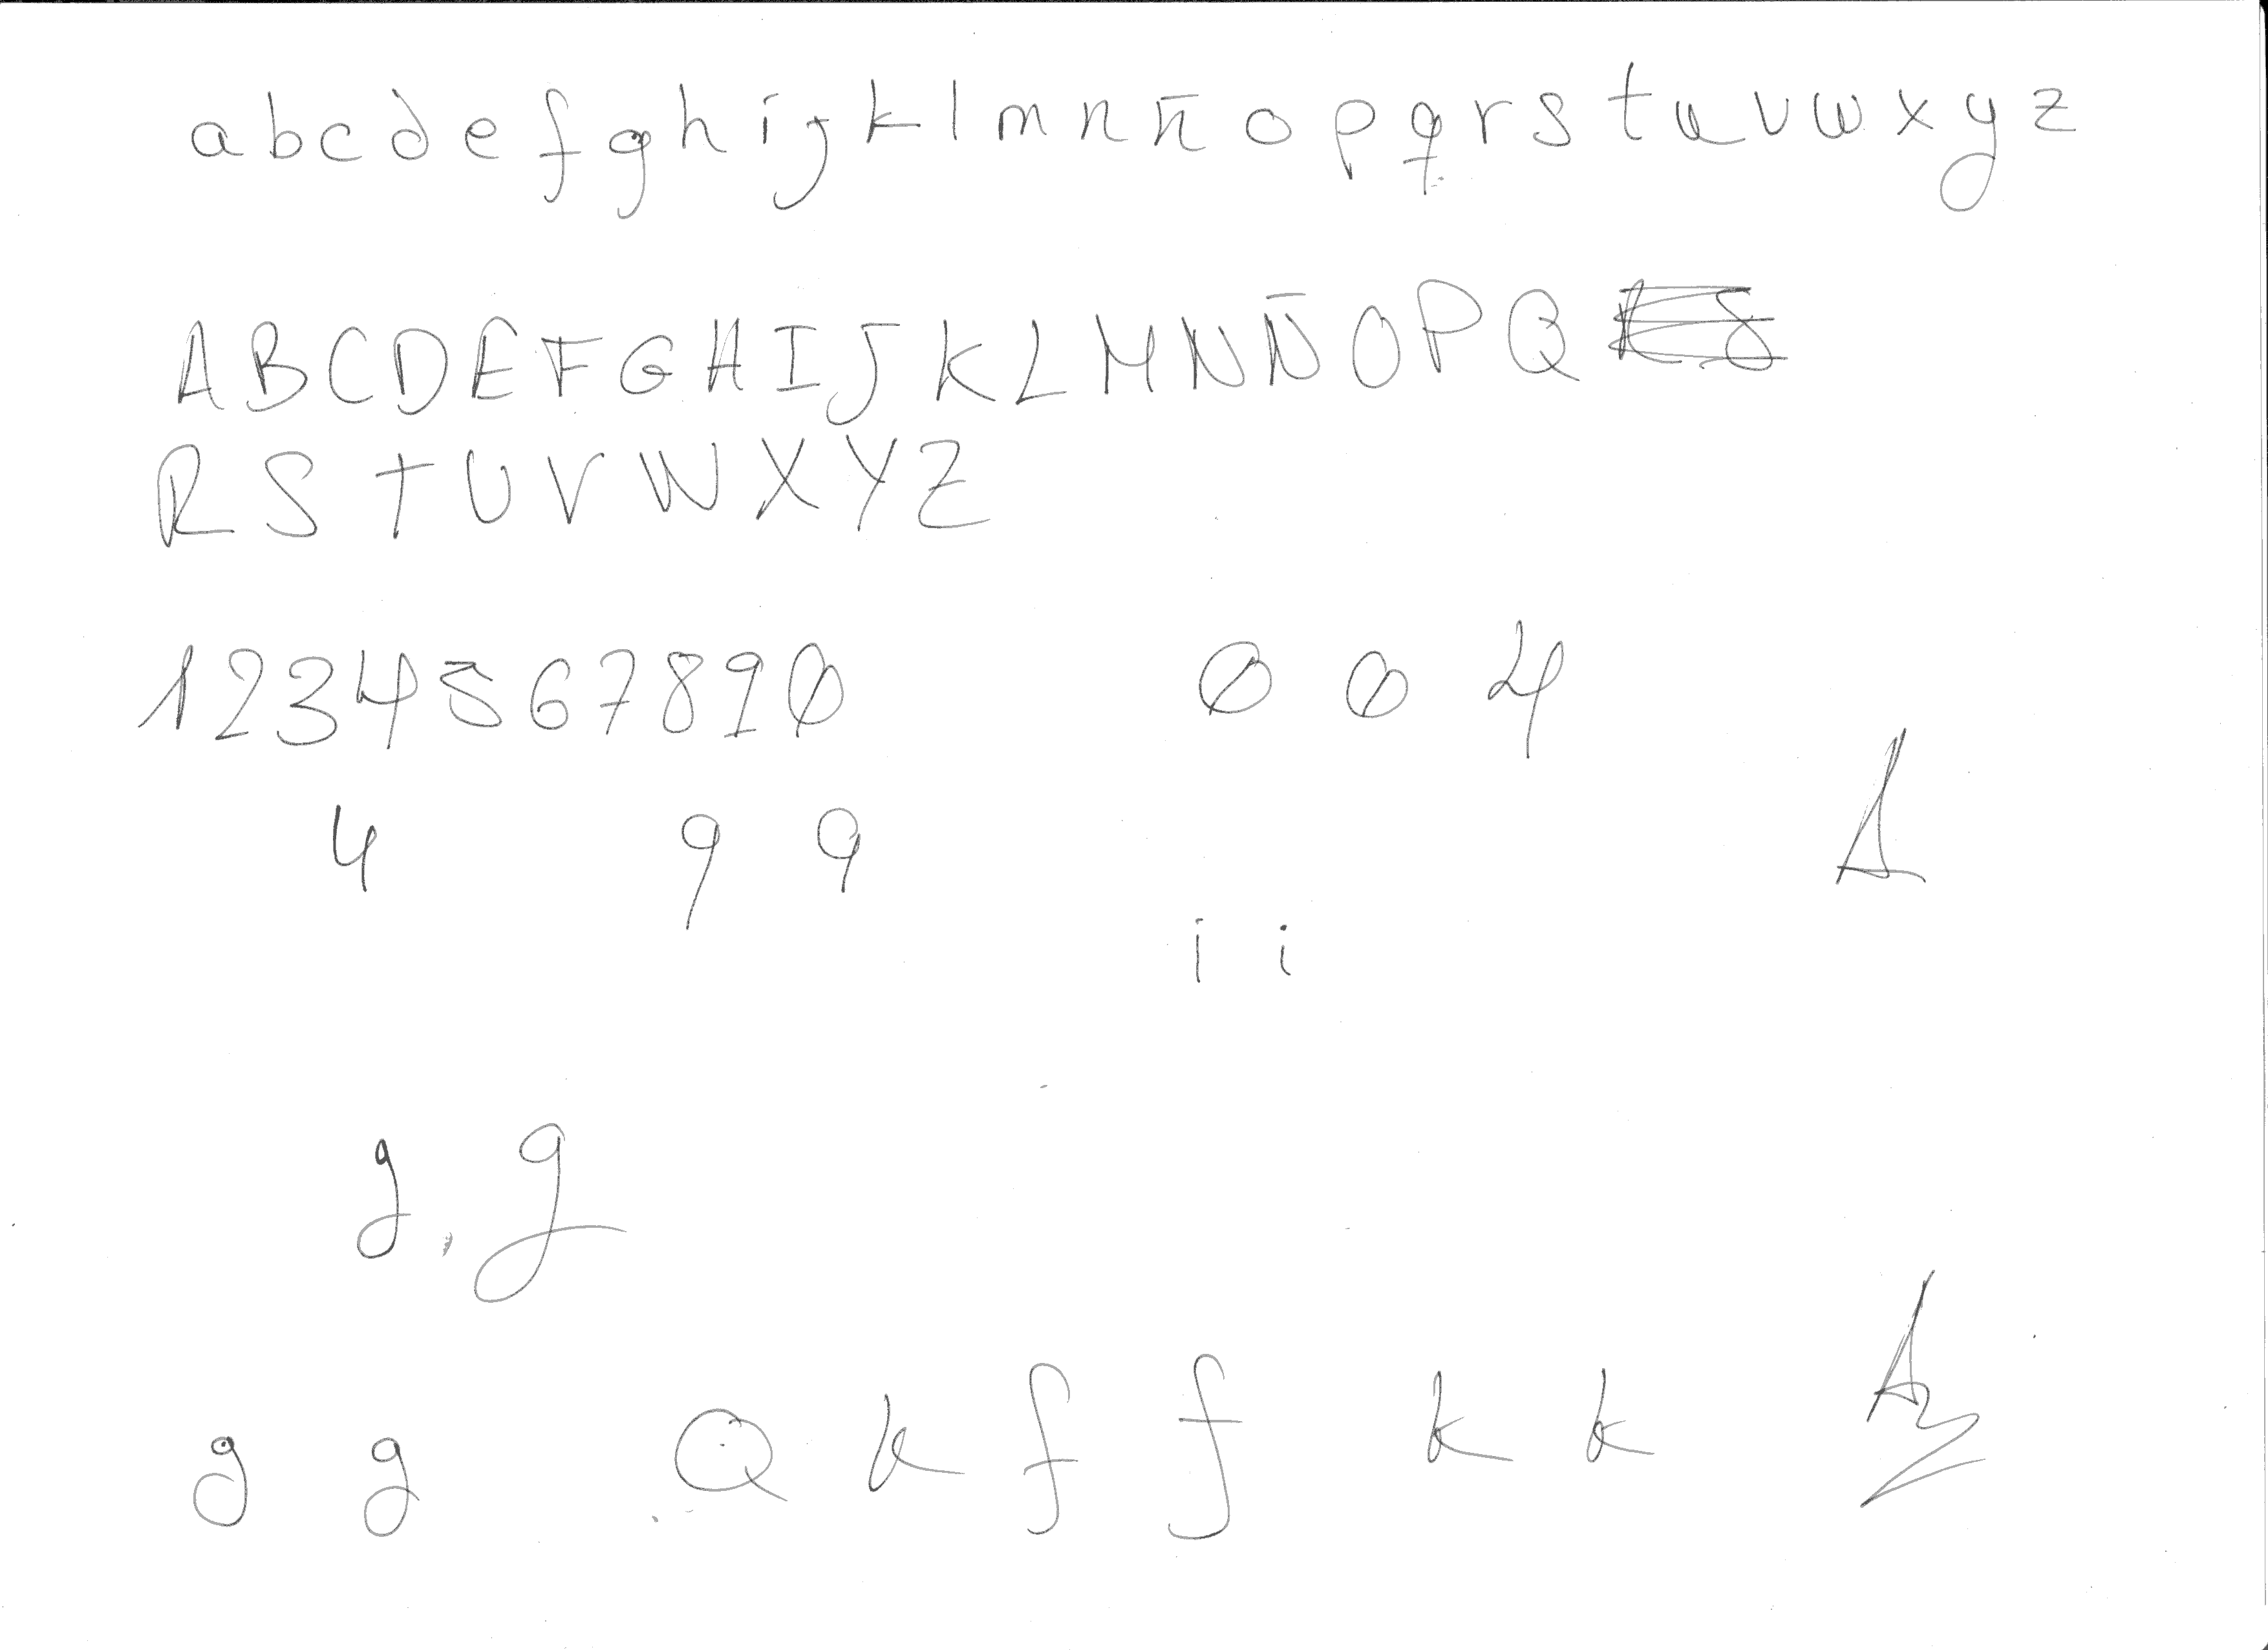 a b c d e f g h i j k l m n ñ o p q r s t u v w x y z
A B C D E F G H I J K L M N Ñ O P Q
R S T U V W X Y Z
1 2 3 4 5 6 7 8 9 0 0 0 4
4 9 9 A
i i
g, g
g g Q k f f k k